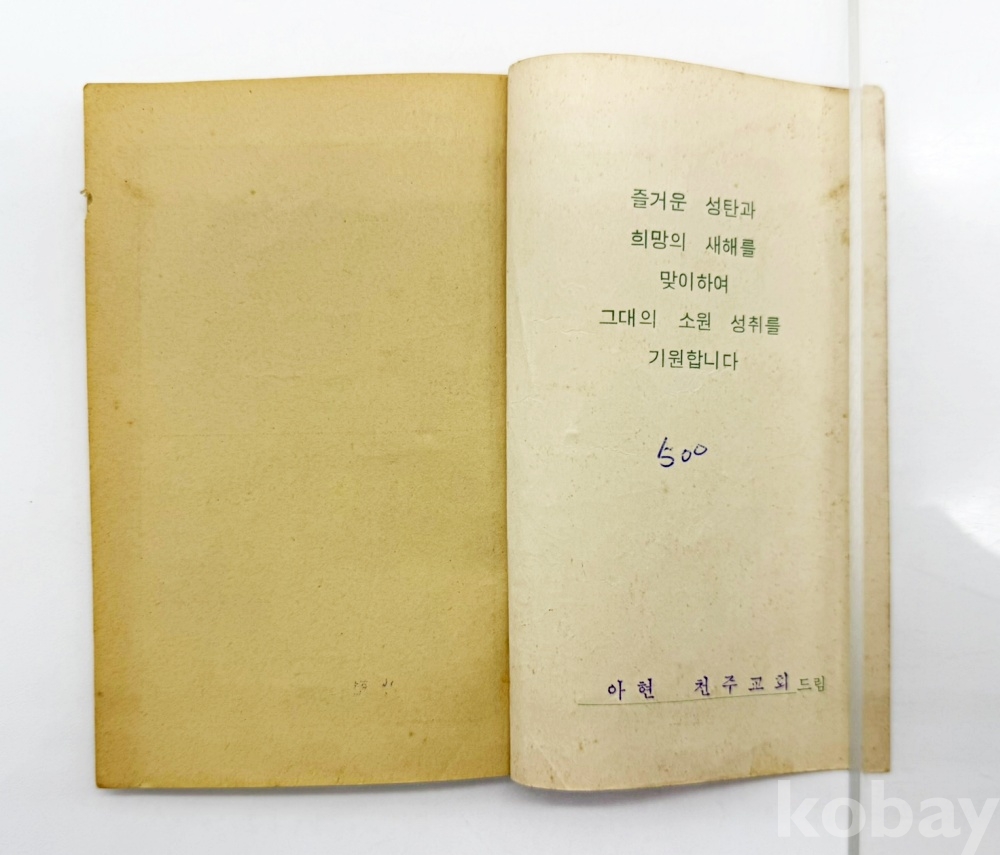 즐거운 성탄과
희망의 새해를
맞이하여
그대의 소원 성취를
기원합니다
500
아현 천주교회 드림
kobay